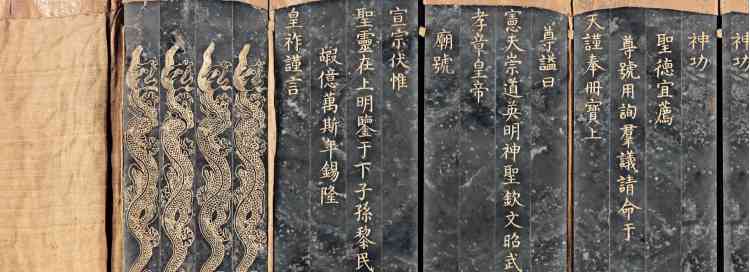 神功
神功
聖德宜薦
尊號用詢羣議請命于
天謹奉冊寶上
尊謚曰
憲天崇道英明神聖欽文昭武
孝章皇帝
廟號
宣宗伏惟
聖靈在上明鑒于下子孫黎民
嘏億萬斯年錫隆
皇祚謹言